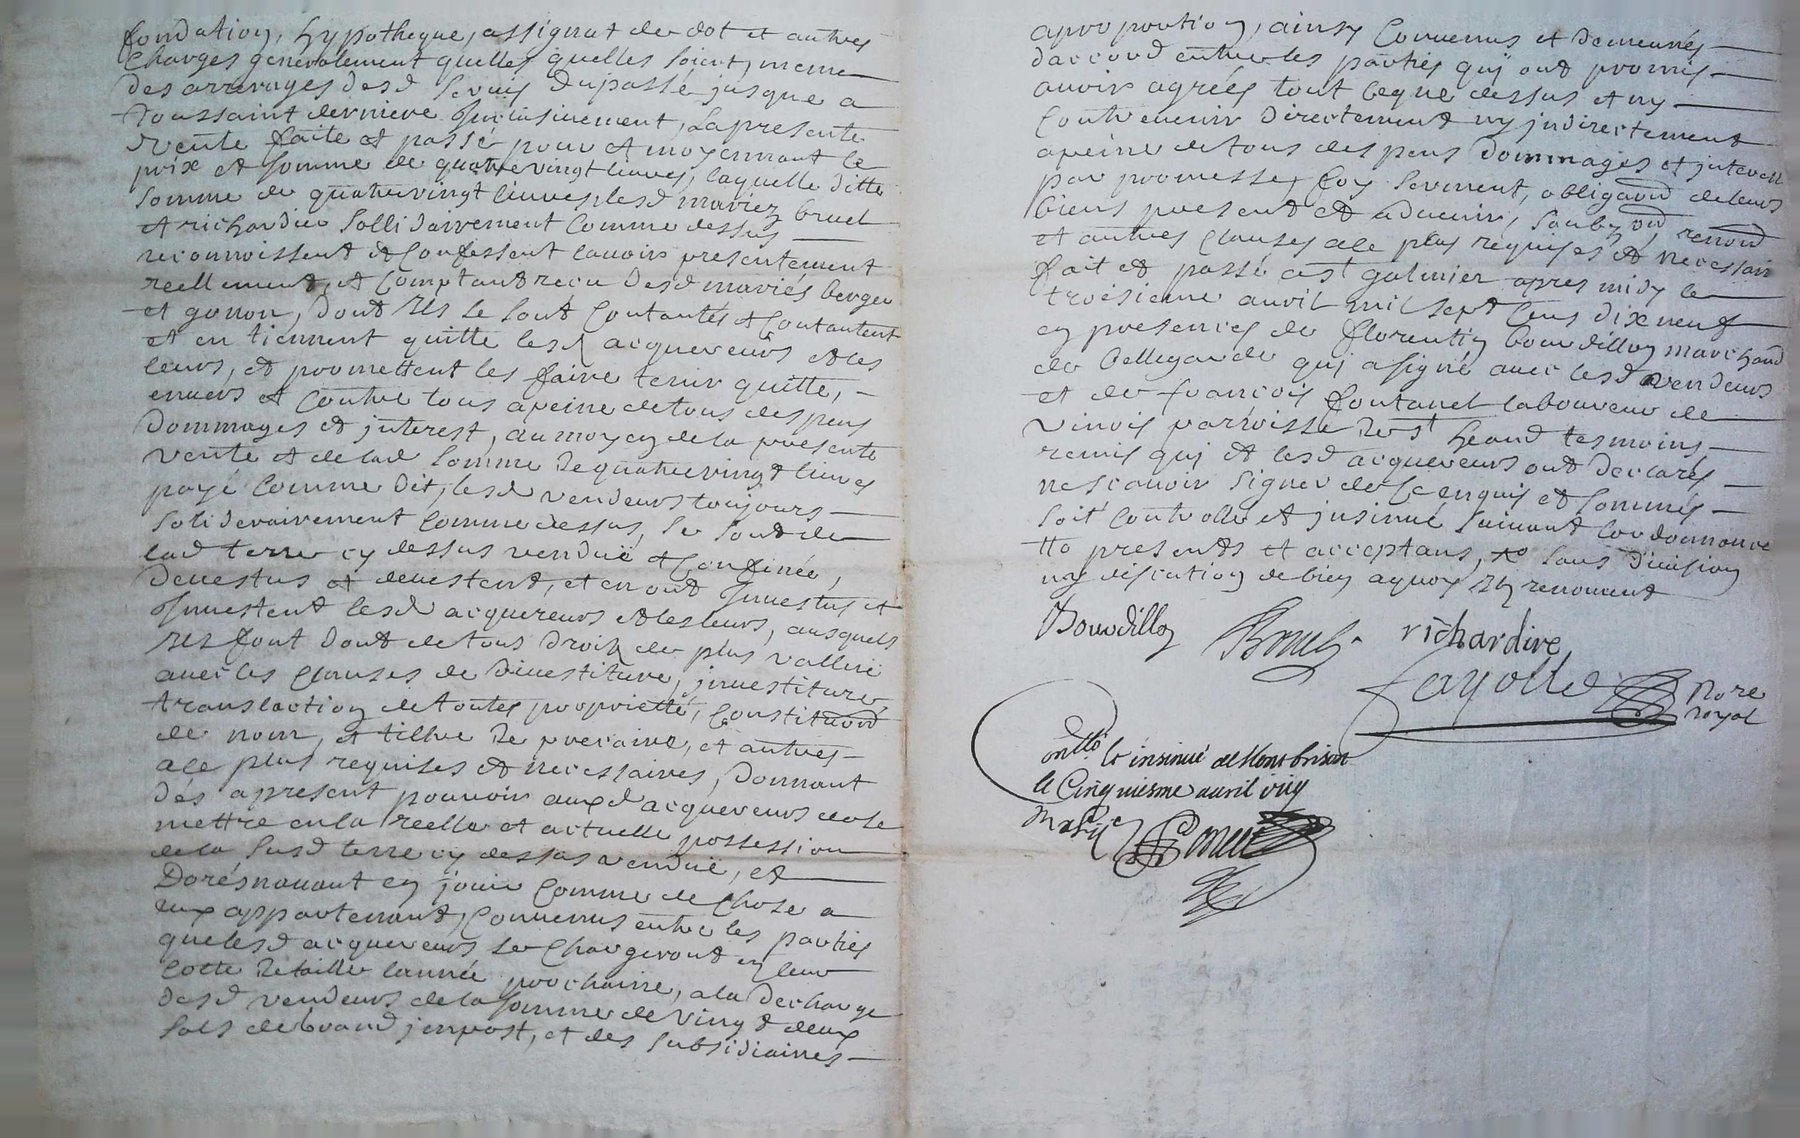 fondation, hypotheque, assignat de dot et autres
charges generalement quelles quelles soient, meme
des arrerages desd servis du passé jusque a
toussaint derniere inclusivement, La presente
vente faite et passé pour et moyennant le
prix et somme de quatrevingt livres, laquelle ditte
somme de quatrevingt livres lesd mariez bruel
et richardier sollidairement comme dessus
reconnoissent et confessent lavoir presentement
reellement, et comptant receu desd mariés berger
et gonon, dont ils se sont contantés et contantent
et en tiennent quitte lesd acquereurs et les
leurs, et promettent les faire tenir quitte,
envers et contre tous a peine de tous despens
dommages et interest, au moyen de la presente
vente et de lad somme de quatrevingt livres
payé comme dit, lesd vendeurs toujours
soliderairement comme dessus, se sont de
lad terre cy dessus venduë et confinée,
devestus et devestent, et en ont investus et
investent lesd acquereurs et les leurs, ausquels
ils font dont de tous droits de plus valleur
avec les clauses de divestiture, investiture
translaction de toutes proprietté, constitution
de nom, et tiltre de precaire, et autres
a ce plus requises et necessaires, donnant
dés apresent pouvoir auxd acquereurs de se
mettre en la reelle et actuelle possession
de la susd terre cy dessus vendue, et
dorésnavant en jouir comme de chose a
eux appartenant, convenus entre les parties
que lesd acquereurs se chargeront en leur
cotte de taille lannée prochaine, a la decharge
desd vendeurs de la somme de vingt deux
sols de grand jmpost, et des subsidiaires
a proportion, ainsy convenus et demeurés
daccord entre les parties qui ont promis
avoir agreés tout ce que dessus et ny
contrevenir directement ny jndirectement
a peine de tous despens dommages et interest
par promesse, foy serment, obligaon de leurs
biens present et advenir, soubzon, renon
et autres clauses a ce plus requises et necessair
fait et passé a st galmier apres midy le
troisieme avril mil sept cens dixneuf
en presences de florentin bourdillon marchand
de bellegarde qui a signé avec lesd vendeurs
et de françois fontanel laboureur de
vinois parroisse de st heand tesmoins
remis qui et lesd acquereurs ont declarés
ne scavoir signer de ce enquis et sommés
soit controllé et jnsinué suivant lordonnance
tto presents et acceptans, to sans division
ny discution de bien a quoy ils renoncent
Bourdillon Bruel richardire
fayolle Nore
royal
Contllé et insinué a Montbrison
le Cinquiesme avril